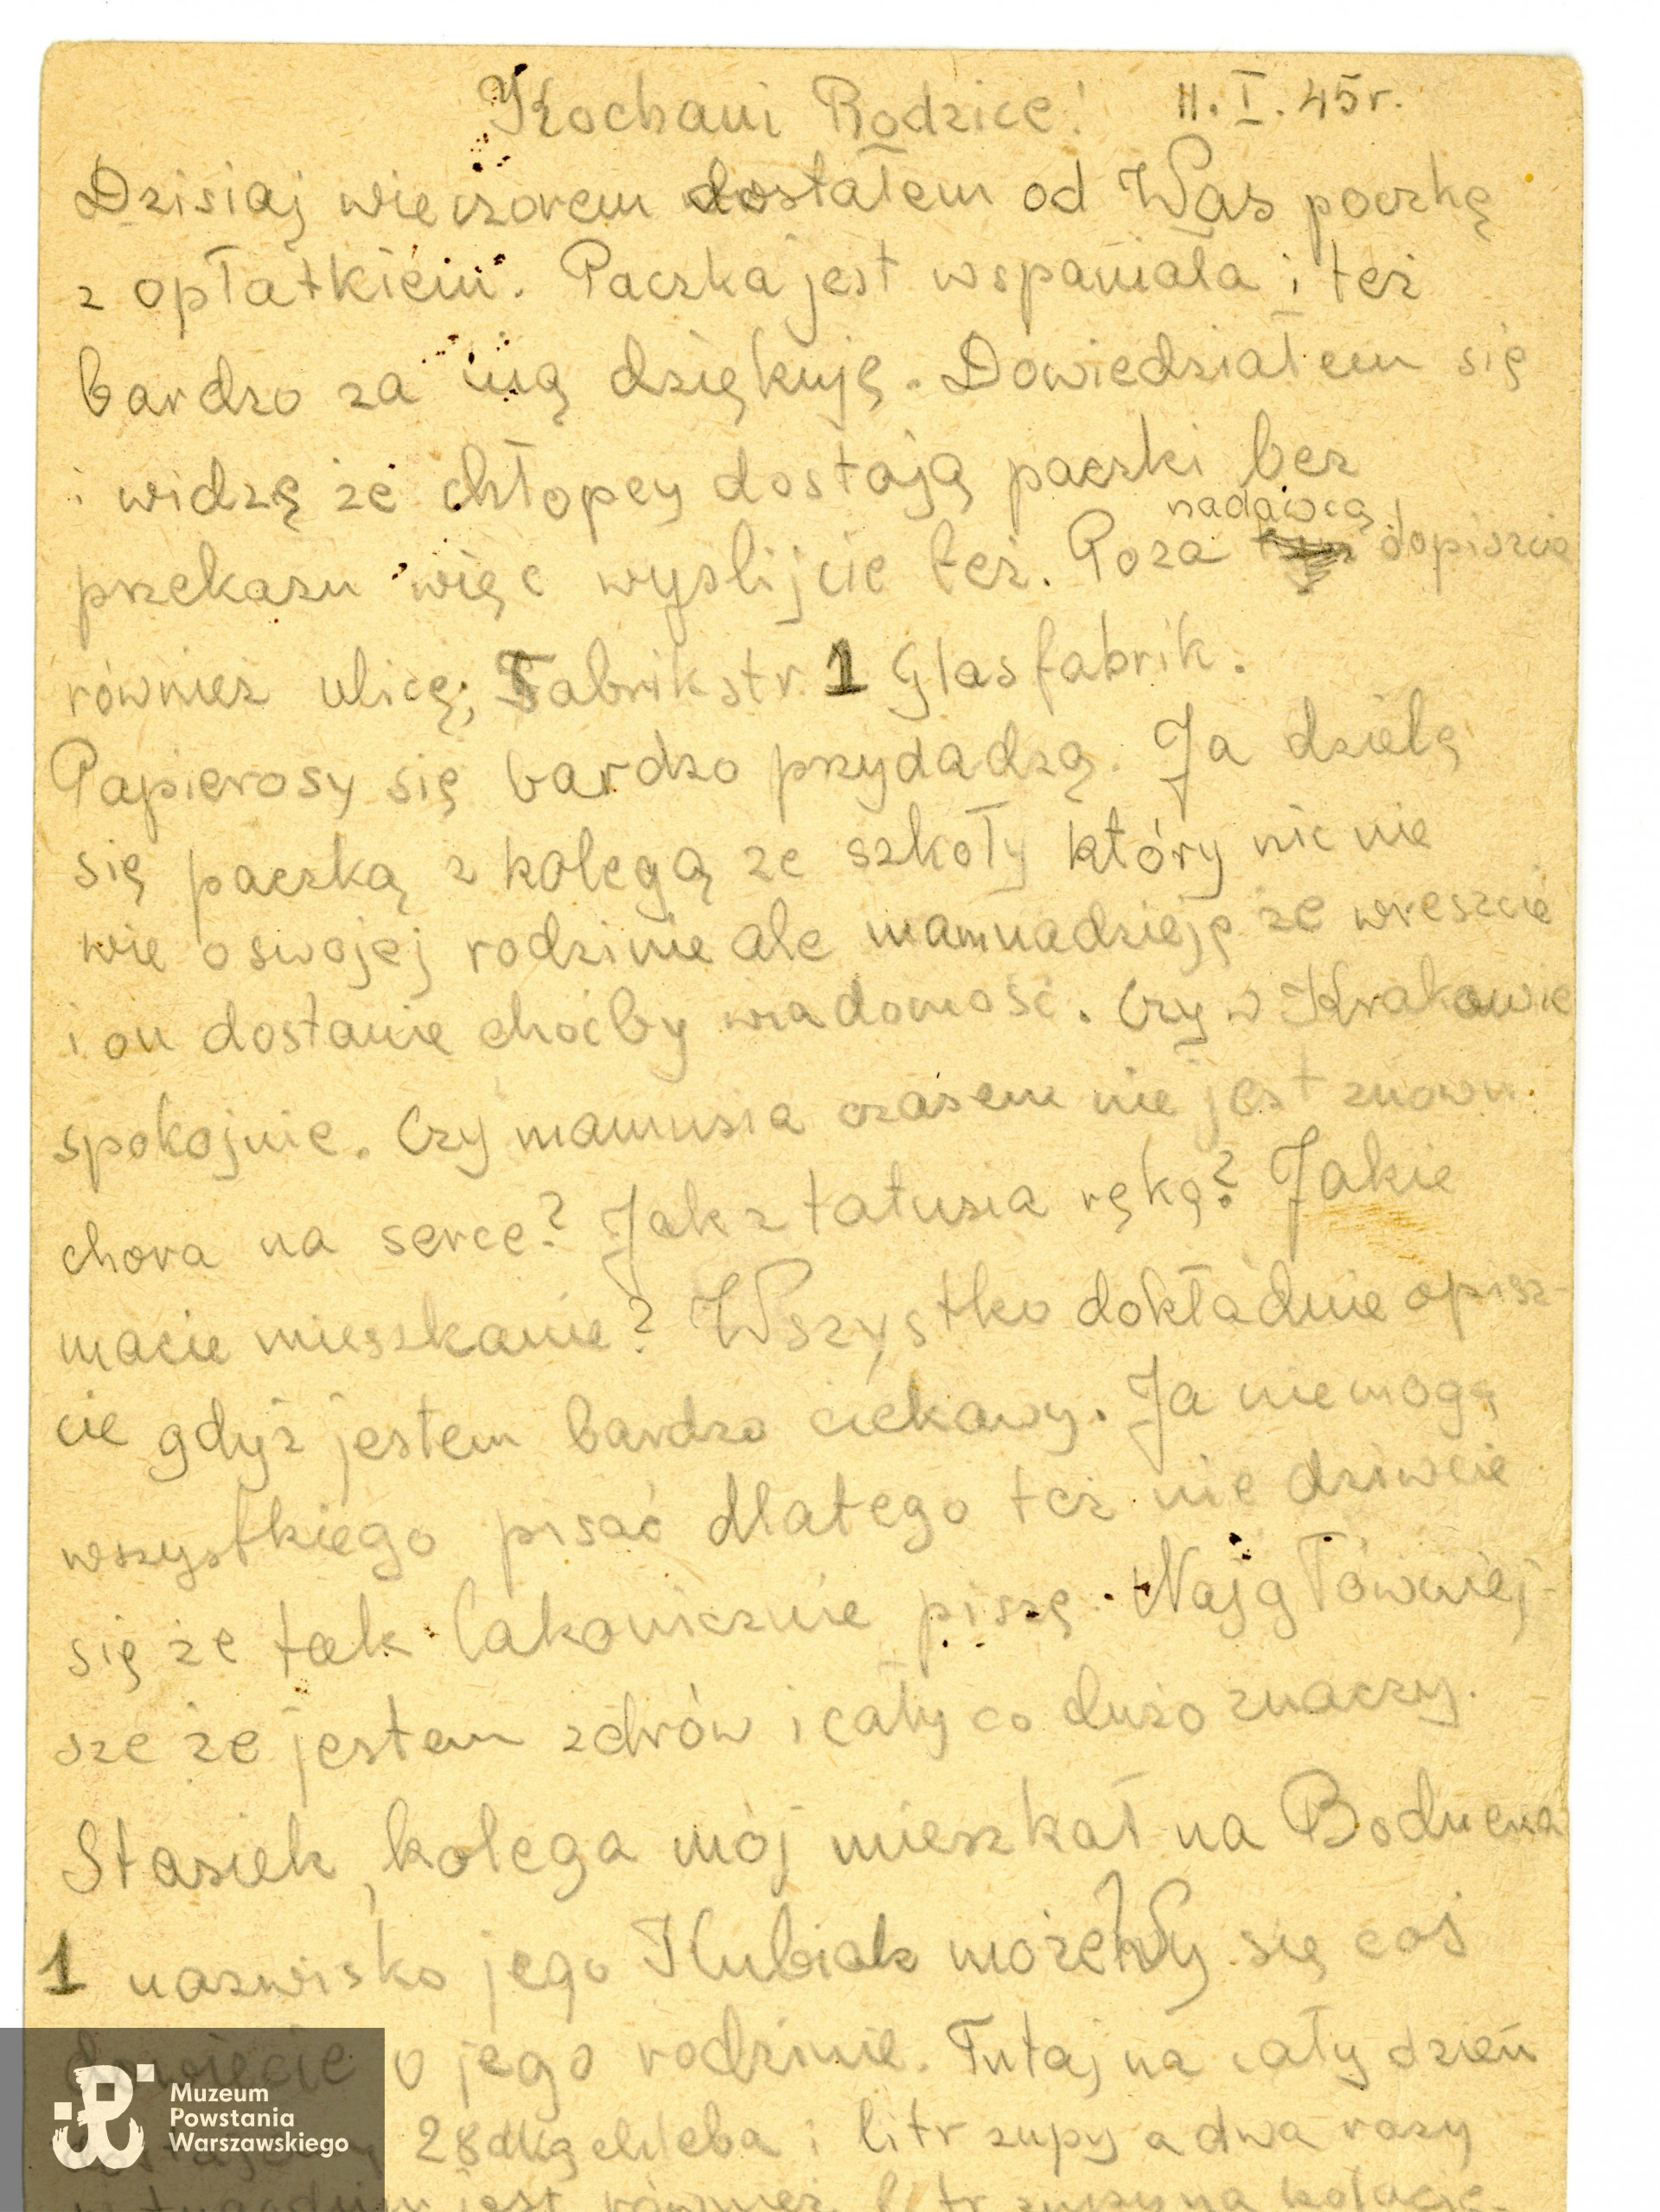 Kochani Rodzice! 11. I. 45r.
Dzisiaj wieczorem dostałem od Was paczkę
z opłatkiem. Paczka jest wspaniała i też
bardzo za nią dziękuję. Dowiedziałem się
i widzę że chłopcy dostają paczki bez
przekazu więc wyslijcie też. Poza nadawcą dopiszcie
również ulicę, Fabrikstr. 1 Glasfabrik.
Papierosy się bardzo przydadzą. Ja dzielę
się paczką z kolegą ze szkoły który nic nie
wie o swojej rodzinie ale mam nadzieję że wreszcie
i on dostanie choćby wiadomość. Czy w Krakowie
spokojnie. Czy mamusia czasem nie jest znowu
chora na serce? Jak z tatusia ręką? Jakie
macie mieszkanie? Wszystko dokładnie opisz-
cie gdyż jestem bardzo ciekawy. Ja nie mogę
wszystkiego pisać dlatego też nie dziwcie
się że tak lakonicznie piszę. Najgłówniej-
sze że jestem zdrów i cały co dużo znaczy.
Stasiek, kolega mój mieszkał na Boduena
1 nazwisko jego Kubiak może Wy się coś
dowiecie o jego rodzinie. Tutaj na cały dzień
28 dkg chleba i litr zupy a dwa razy
w tygodniu jest również litr zupy na kolację
Muzeum
Powstania
Warszawskiego